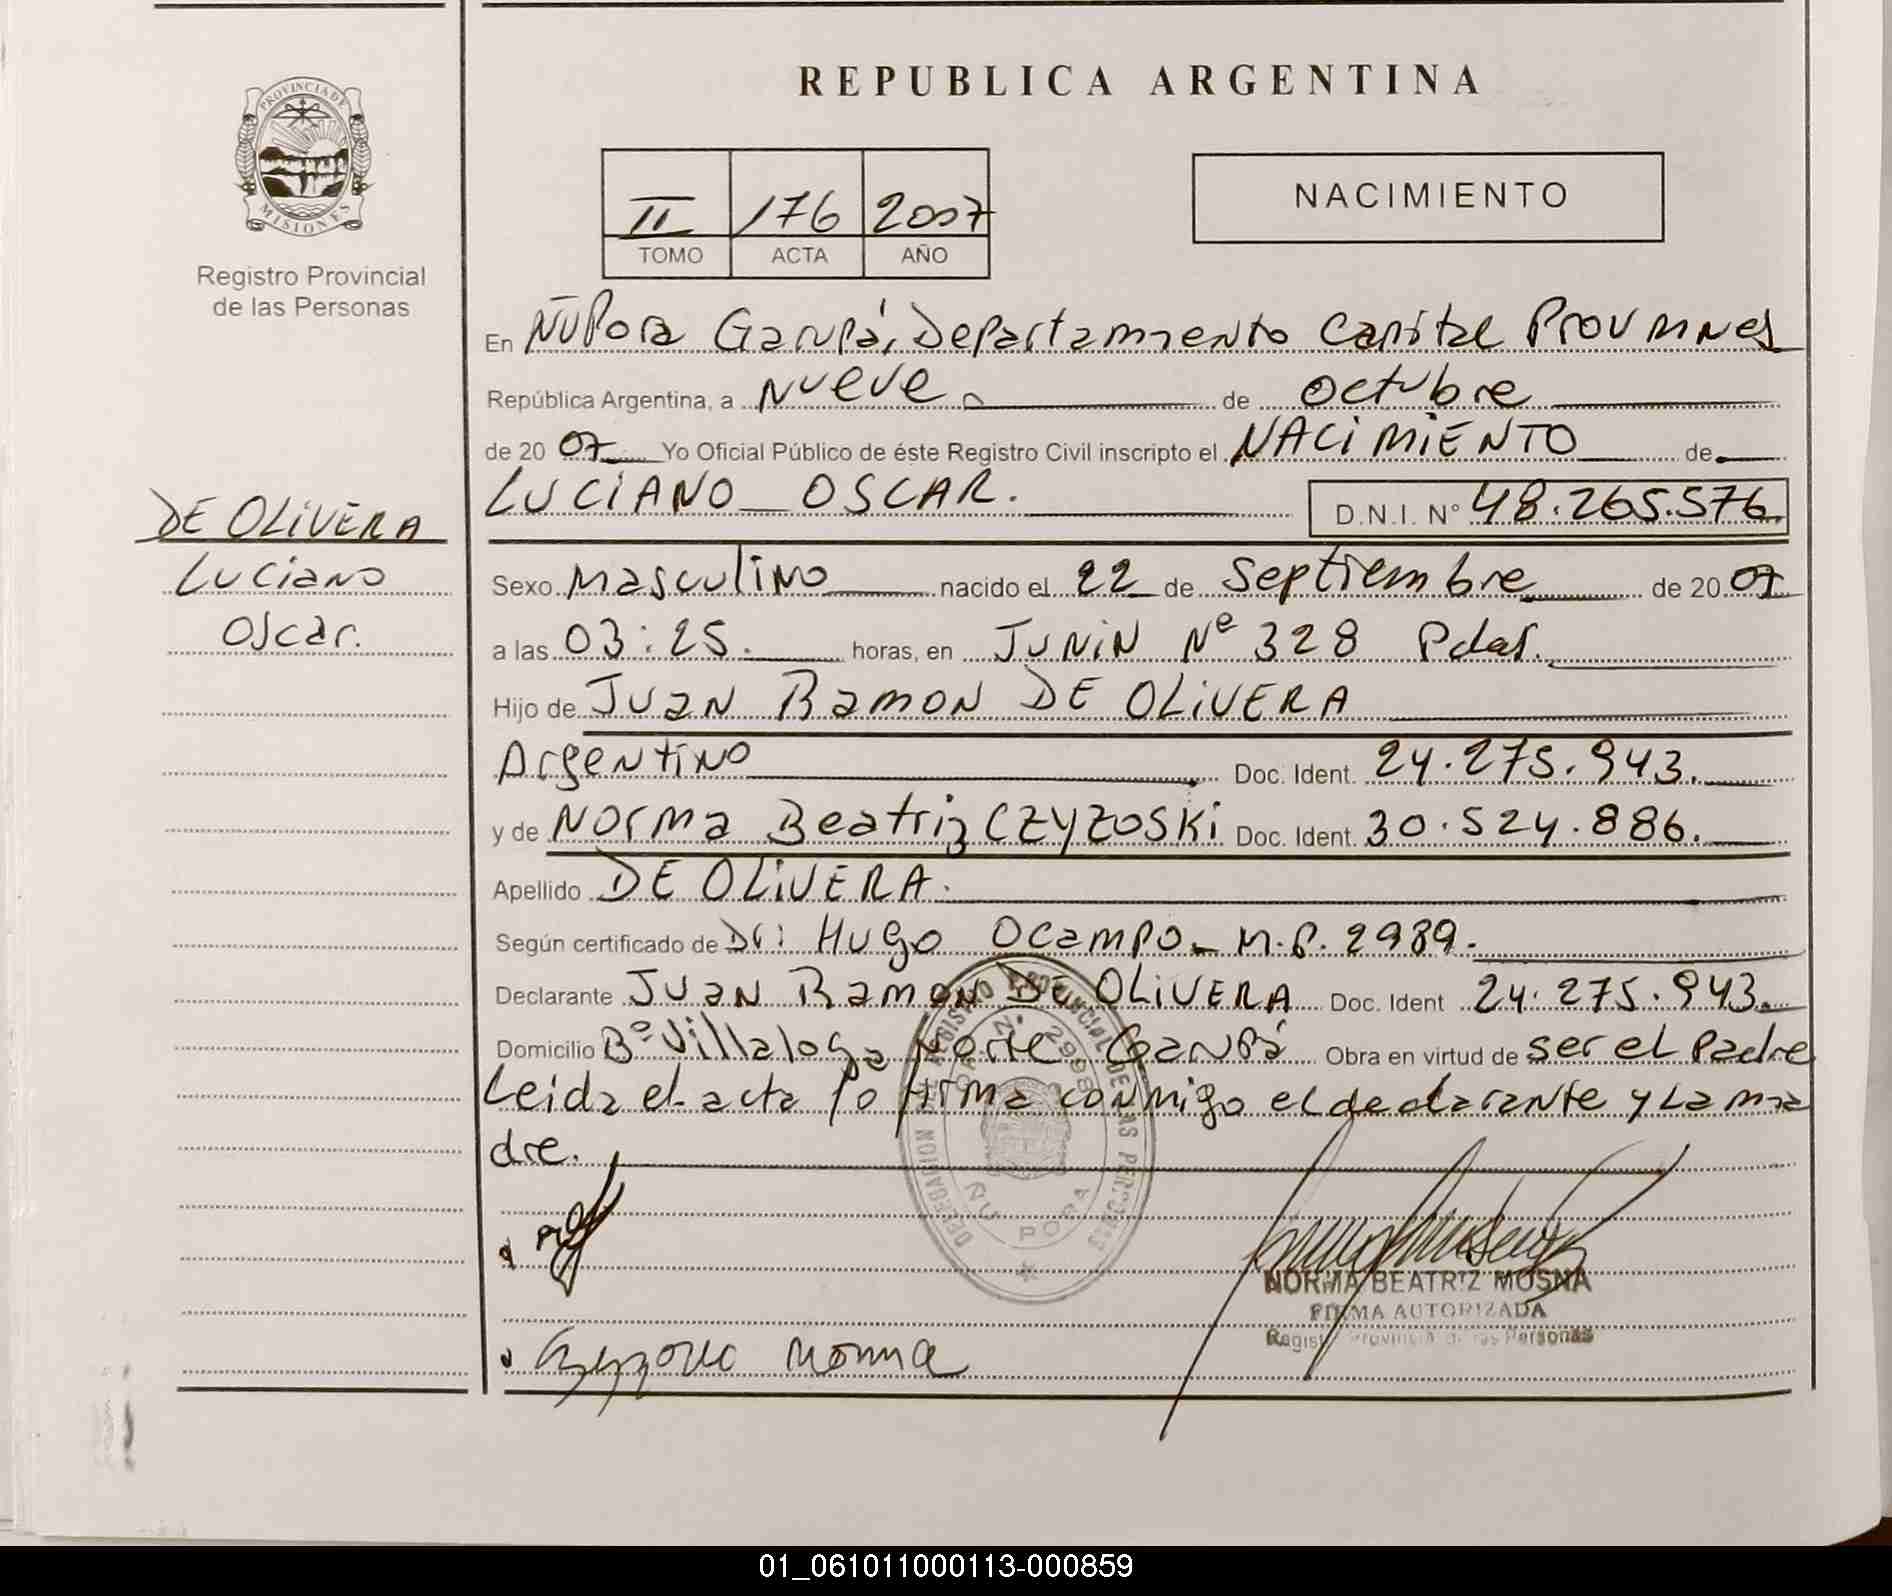 REPUBLICA ARGENTINA
PROVINCIA DE
MISIONES
Registro Provincial
de las Personas
II 176 2007
TOMO ACTA AÑO
NACIMIENTO
En Ñu Pora Garupá, Departamento Capital Prov Mnes
República Argentina, a nueve de octubre
de 2007 Yo Oficial Público de éste Registro Civil inscripto el NACIMIENTO de
LUCIANO OSCAR. D.N.I. N° 48.265.576.
DE OLIVERA
Luciano
Oscar.
Sexo Masculino nacido el 22 de Septiembre de 2007
a las 03:25. horas, en JUNIN Nº 328 Pdas.
Hijo de Juan Ramon DE OLIVERA
Argentino Doc. Ident. 24.275.943.
y de Norma Beatriz CZYZOSKI Doc. Ident. 30.524.886.
Apellido DE OLIVERA.
Según certificado de Dr: Hugo Ocampo - M.P. 2989.
Declarante Juan Ramon DE OLIVERA Doc. Ident 24.275.943.
Domicilio Bº Villalonga Norte Garupá Obra en virtud de ser el Padre
Leida el acta lo firma conmigo el declarante y la ma
dre.
DELEGACION REGISTRO PROVINCIAL DE LAS PERSONAS
ÑU PORA
NORMA BEATRIZ MOSNA
FIRMA AUTORIZADA
Registro Provincial de las Personas
01_061011000113-000859